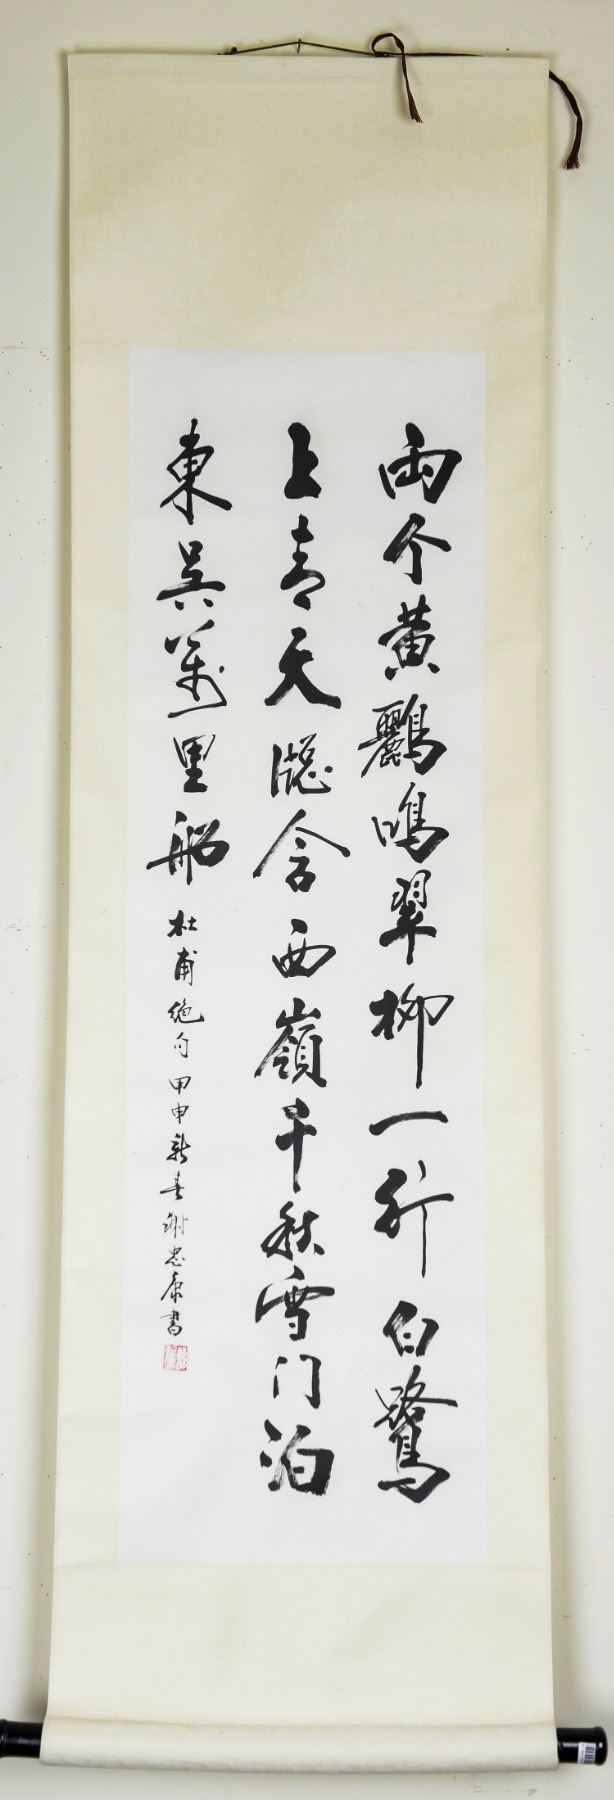 兩个黄鸝鳴翠柳一行白鷺
上青天牕含西嶺千秋雪门泊
東吴萬里船
杜甫絶句甲申新春谢忠康書